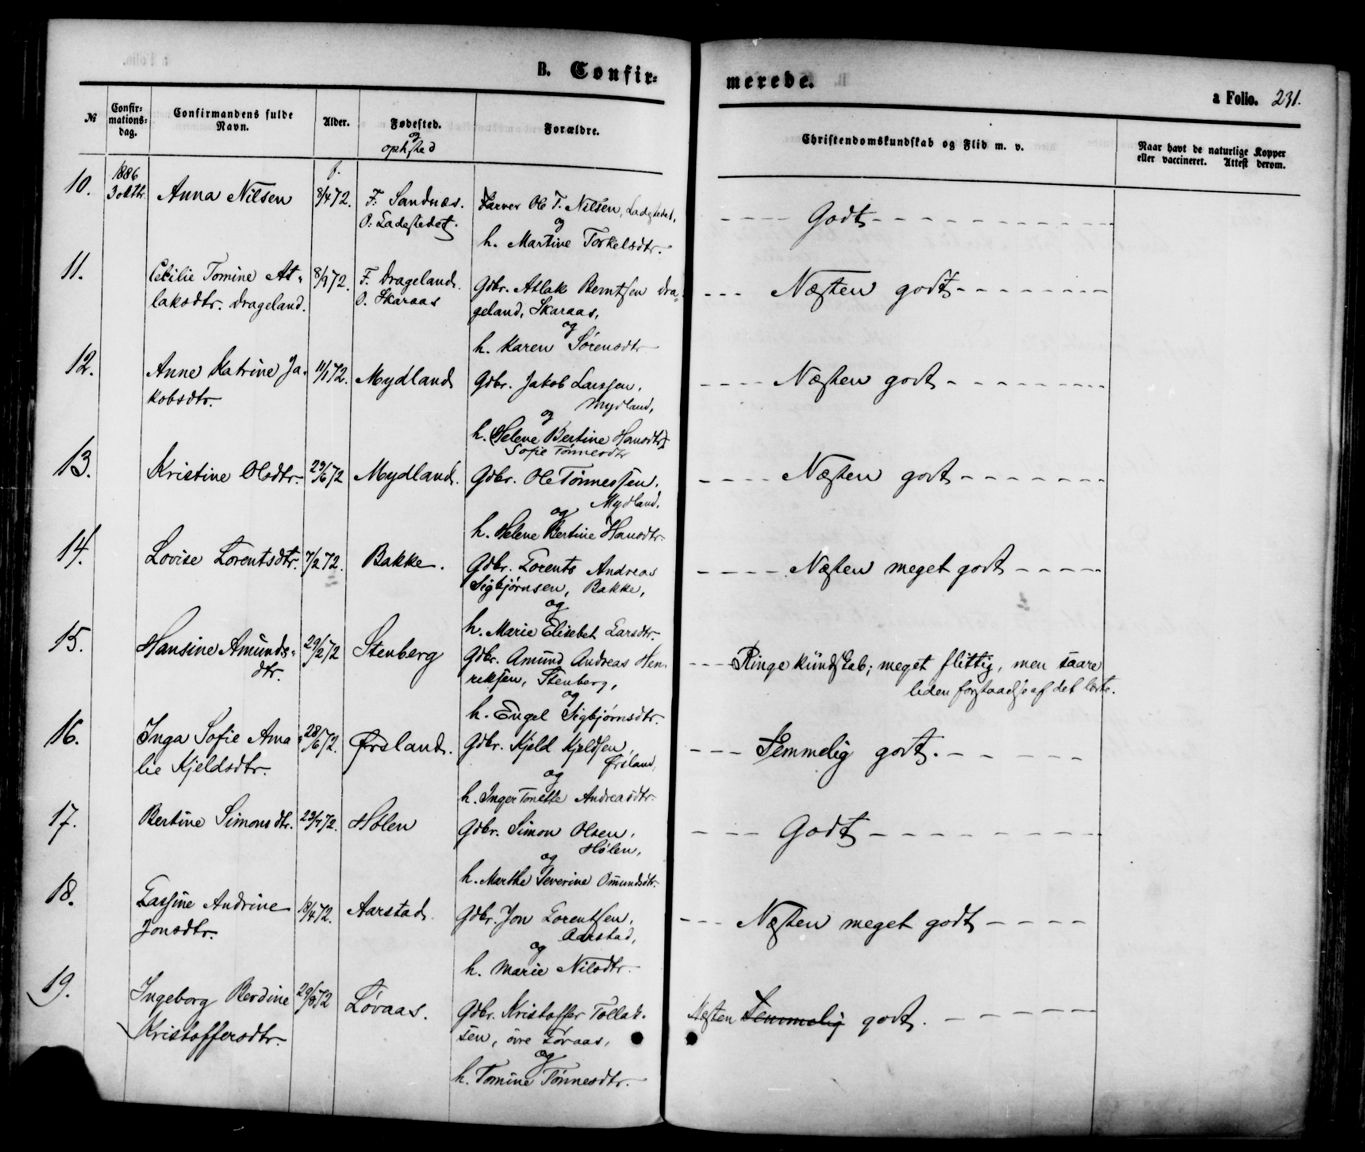 B. Confir=
№
Confir=
mations=
dag.
Confirmandens fulde
Navn.
Alder.
Fødested.
og
opholdssted
Forældre.
10.
1886
3 oktbr
Anna Nilsen
f.
8/4 72.
F. Sandnæs.
O. Ladestedet.
Farver Ole T. Nilsen, Ladestedet,
og
h. Martine Torkelsdtr.
11.
Cecilie Tomine At=
laksdtr. Drageland.
8/9 72.
F. Drageland.
O. Skaraas
Gdbr. Atlak Berntsen Dra=
geland, Skaraas,
og
h. Karen Sørensdtr
12.
Anne Katrine Ja=
kobsdtr.
11/1 72.
Mydland
Gdbr. Jakob Larssen,
Mydland,
og
h. Helene Bertine Hansdtr
Sofie Tønnesdtr
13.
Kristine Olsdtr.
29/6 72
Mydland.
Gdbr. Ole Tønnessen,
Mydland,
og
h. Helene Bertine Hansdtr.
14.
Lovise Lorentsdtr.
7/2 72.
Bakke.
Gdbr. Lorents Andreas
Sigbjørnsen, Bakke,
og
h. Marie Elisebet Larsdtr.
15.
Hansine Amunds=
dtr.
29/2 72
Stenberg
Gdbr. Amund Andreas Hen=
riksen, Stenberg,
og
h. Engel Sigbjørnsdtr.
16.
Inga Sofie Ama=
lie Kjeldsdtr.
28/6 72.
Ørsland.
Gdbr. Kjeld Kjeldsen,
Ørsland,
og
h. Inger Tonette Andreasdtr.
17.
Bertine Simonsdtr.
29/7 72.
Hølen
Gdbr. Simon Olsen,
Hølen,
og
h. Marthe Severine Omundsdtr.
18.
Tassine Andrine
Jonsdtr.
19/4 72.
Aarstad.
Gdbr. Jon Lorentsen,
Aarstad,
og
h. Marie Nilsdtr.
19.
Ingeborg Berdine
Kristoffersdtr.
29/8 72
Løvaas.
Gdbr. Kristoffer Tollak=
sen, øvre Løvaas,
og
h. Tomine Tønnesdtr.
merede.
a Folio. 231.
Christendomskundskab og Flid m. v.
Naar havt de naturlige Kopper
eller vaccineret. Attest derom.
Godt
Næsten godt
Næsten godt
Næsten godt
Næsten meget godt
Ringe kundskab; meget flittig, men saare
liden forstaaelse af det lærte.
Temmelig godt.
Godt
Næsten meget godt
Næsten Temmelig godt.